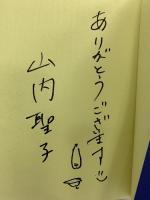 ありがとうございます
山内聖子